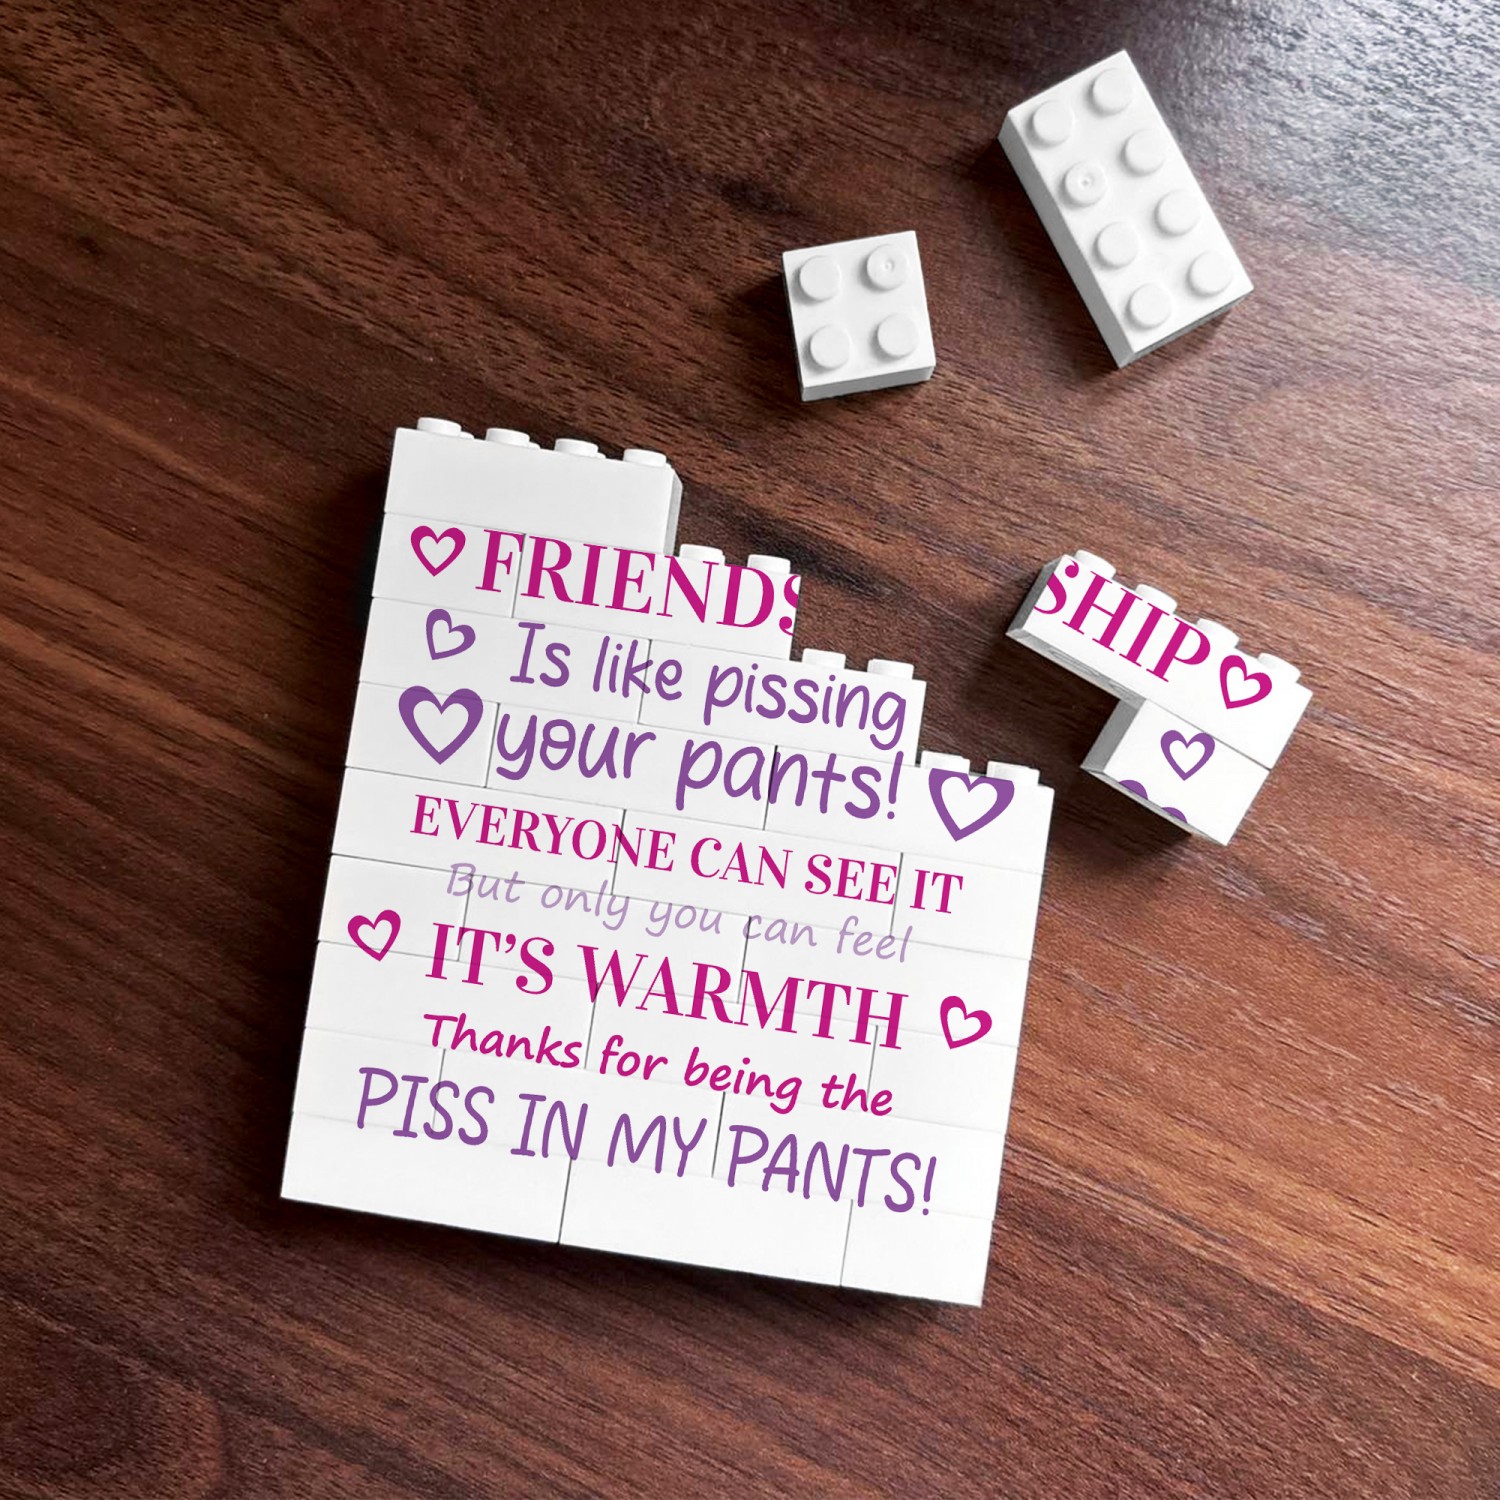 FRIENDSHIP
Is like pissing
your pants!
EVERYONE CAN SEE IT
But only you can feel
IT'S WARMTH
Thanks for being the
PISS IN MY PANTS!